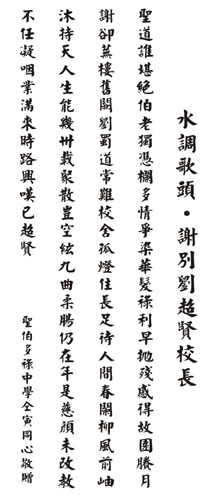 水調歌頭·謝別劉超賢校長
聖道誰堪絕伯老獨憑欄多情爭染華髮祿利早拋殘感得故園勝月
謝卻蕪樓舊閣劉蜀道常難校舍孤燈住長足待人間春關柳風前岫
沐待天人生能幾卅載聚散豈空絃九曲柔腸仍在年是慈顏未改教
不任凝咽業滿來時路興嘆已超賢
聖伯多祿中學仝寅同心敬贈